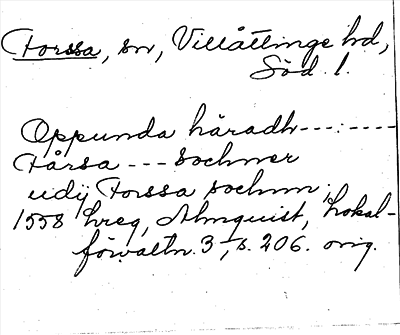 Forssa, sn, Villåttinge hd,
Söd. l.
Oppunda häradh---:----
Fårsa --- Sochner
udij Forssa sochnn;
1558 hreg, Almquist, Lokal-
förvaltn. 3, s. 206. orig.